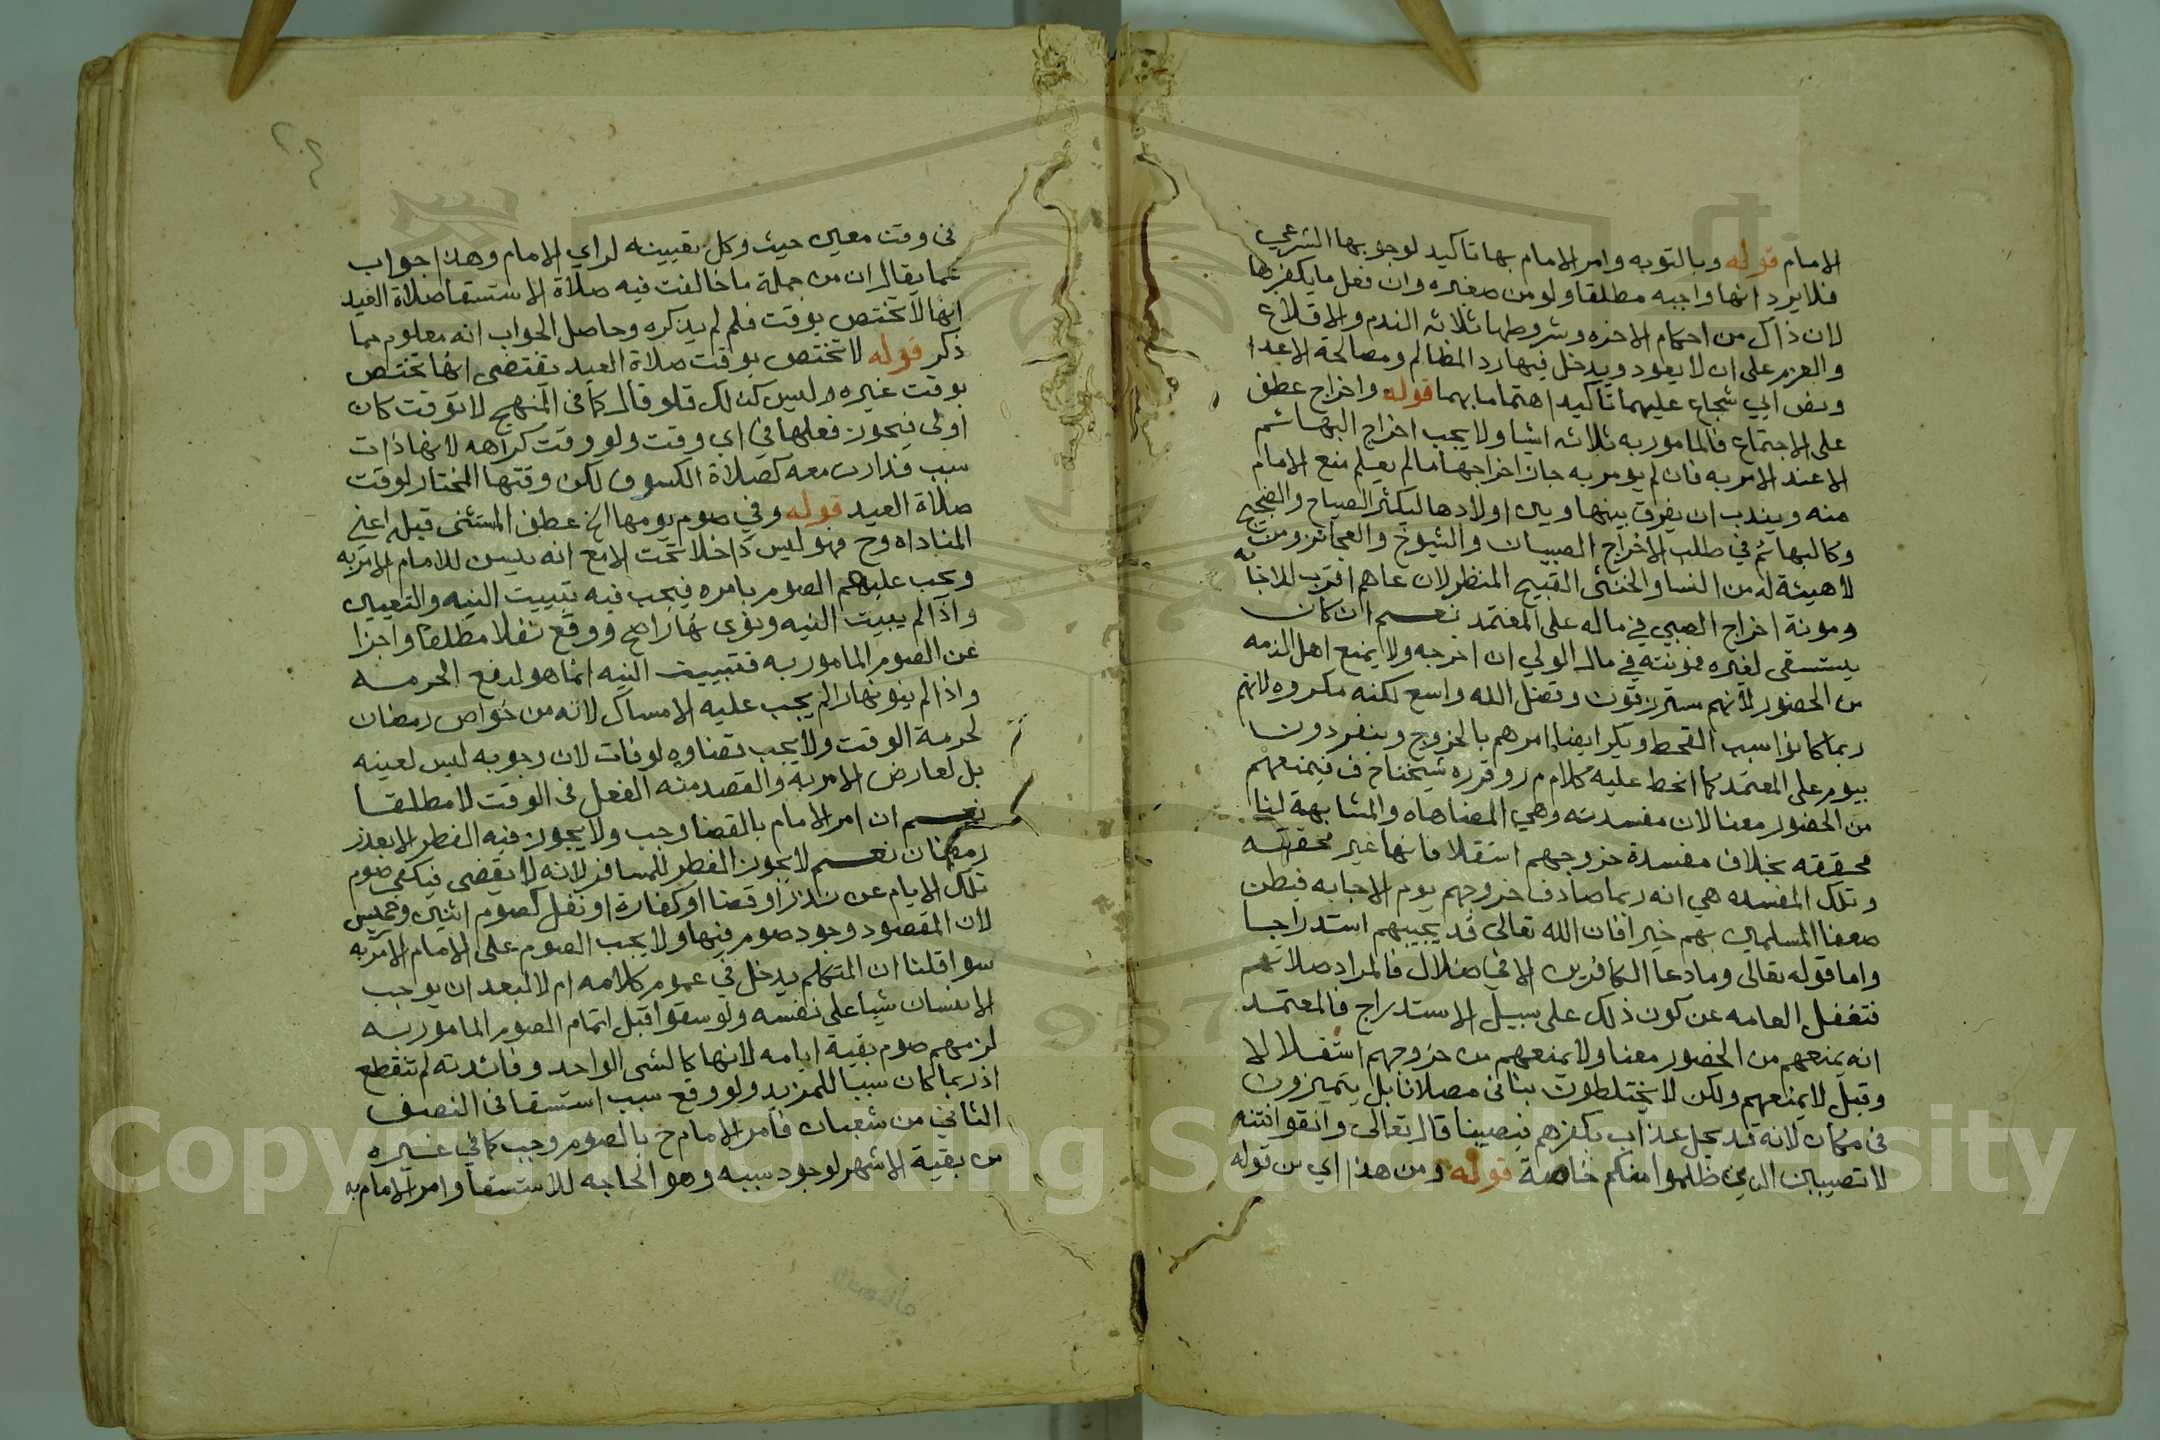 الامام قوله وبالتوبه وامر الامام بها تاكيد لوجوبها الشرعي
فلا يرد انها واجبه مطلقا ولو من صغيره وان فعل ما يكفرها
لان ذاك من احكام الاخره وشروطها ثلاثه الندم والاقلاع
والعزم على ان لا يعود ويدخل فيها رد المظالم ومصالحة الاعدا
ونص ابي شجاع عليهما تاكيدا اهتماما بهما قوله واخراج عطف
على الاجتماع فالمامور به ثلاثه اشيا ولا يجب اخراج البهائم
الا عند الامر به فان لم يومر به جاز اخراجها ما لم يعلم منع الامام
منه ويندب ان يفرق بينها وبين اولادها ليكثر الصياح والضجيج
وكالبهائم في طلب الاخراج الصبيان والشيوخ والعجائز ومن
لا هيئة له من النسا والخنثى القبيح المنظر لان دعاهم اقرب للاجابه
ومونة اخراج الصبي في ماله على المعتمد نعم ان كان
يستسقى لغيره فمونته في مال الولي ان اخرجه ولا يمنع اهل الذمه
من الحضور لانهم مسترزقون وفضل الله واسع لكنه مكروه لانهم
ربما كانوا سبب القحط ويكره ايضا امرهم بالخروج وينفردون
بيوم على المعتمد كما انحط عليه كلام م ر وقرره شيخنا ح ف فيمنعهم
من الحضور معنا لان مفسدته وهي المضاهاه والمشابهة لنا
محققه بخلاف مفسدة خروجهم استقلالا فانها غير محققه
وتلك المفسده هي انه ربما صادف خروجهم يوم الاجابه فيظن
ضعفا المسلمين بهم خيرا فان الله تعالى قد يجيبهم استدراجا
واما قوله تعالى وما دعا الكافرين الا في ضلال فالمراد صلاتهم
فتغفل العامه عن كون ذلك على سبيل الاستدراج فالمعتمد
انه يمنعهم من الحضور معنا ولا يمنعهم من خروجهم استقلالا
وقيل لا يمنعهم ولكن لا يختلطون بنا في مصلانا بل يتميزون
في مكان لانه قد يحل عذاب بكفرهم فيصيبنا قال تعالى واتقوا فتنه
لا تصيبن الذين ظلموا منكم خاصة قوله ومن هذا اي من قوله
في وقت معين حيث وكل تعيينه لراي الامام وهذا جواب
عما يقال ان من جملة ما خالفت فيه صلاة الاستسقا صلاة العيد
انها لا تختص بوقت فلم لم يذكره وحاصل الجواب انه معلوم مما
ذكر قوله لا تختص بوقت صلاة العيد يقتضي انها تختص
بوقت غيره وليس كذلك فلو قال كما في المنهج لا توقت كان
اولى فيجوز فعلها في اي وقت ولو وقت كراهه لانها ذات
سبب فدارت معه كصلاة الكسوف لكن وقتها المختار لوقت
صلاة العيد قوله وفي صوم يومها الخ عطف المستثنى قبله اعني
المناداه وح فهو ليس داخلا تحت الا مع انه يسن للامام الامر به
ويجب عليهم الصوم بامره فيجب فيه تبييت النيه والتعيين
واذا لم يبيت النيه ونوى نهارا صح ووقع نفلا مطلقا واجزا
عن الصوم المامور به فتبييت النيه انما هو لدفع الحرمه
واذا لم ينو نهارا لم يجب عليه الامساك لانه من خواص رمضان
لحرمة الوقت ولا يجب قضاوه لو فات لان وجوبه ليس لعينه
بل لعارض الامر به والقصد منه الفعل في الوقت لا مطلقا
نعم ان امر الامام بالقضا وجب ولا يجوز فيه الفطر الا بعذر
رمضان نعم لا يجوز الفطر للمسافر لانه لا يقضى فيكفي صوم
تلك الايام عن نذر او قضا او كفارة او نفل كصوم اثنين وخميس
لان المقصود وجود صوم فيها ولا يجب الصوم على الامام الامر به
سوا قلنا ان المتكلم يدخل في عموم كلامه ام لا لبعد ان يوجب
الانسان شيا على نفسه ولو سقوا قبل اتمام الصوم المامور به
لزمهم صوم بقية ايامه لانها كالشي الواحد وفائدته لم تنقطع
اذ ربما كان سببا للمزيد ولو وقع سبب استسقا في النصف
الثاني من شعبان فامر الامام ح بالصوم وجب كما في غيره
من بقية الاشهر لوجود سببه وهو الحاجه للاستسقا وامر الامام به
Copyright © King Saud University
1957